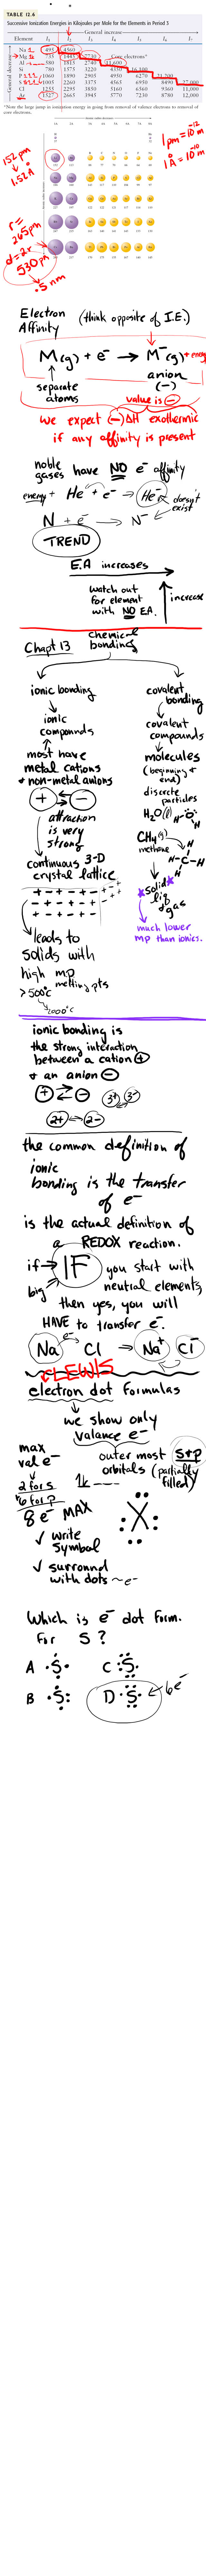 TABLE 12.6
Successive Ionization Energies in Kilojoules per Mole for the Elements in Period 3
General increase
Element I₁ I₂ I₃ I₄ I₅ I₆ I₇
General decrease
Na 495 4560
Mg 735 1445 7730 Core electrons*
Al 580 1815 2740 11,600
Si 780 1575 3220 4350 16,100
P 1060 1890 2905 4950 6270 21,200
S 1005 2260 3375 4565 6950 8490 27,000
Cl 1255 2295 3850 5160 6560 9360 11,000
Ar 1527 2665 3945 5770 7230 8780 12,000
*Note the large jump in ionization energy in going from removal of valence electrons to removal of
core electrons.
1pm = 10⁻¹² m
1Å = 10⁻¹⁰ m
152 pm
1.52 Å
r =
265pm
d = 2r
530 pm
.5 nm
Electron
Affinity
(think opposite of I.E.)
M(g) + e⁻ → M⁻(g) + energy
separate
atoms
anion
(-)
value is -
we expect (-)ΔH exothermic
if any affinity is present
noble
gases have NO e⁻ affinity
energy + He + e⁻ → He⁻ doesn't
exist
N + e⁻ → N⁻
TREND
E.A increases
watch out
for element
with NO E.A.
increase
Chapt 13
chemical
bonding
ionic bonding
ionic
compounds
most have
metal cations
+ non-metal anions
+ -
attraction
is very
strong
continuous 3-D
crystal lattice
+ - + - + -
- + - + - +
+ - + - + -
leads to
solids with
high mp
melting pts
> 500°C
2000°C
covalent
bonding
covalent
compounds
molecules
(beginning +
end)
discrete
particles
H₂O(l) H-O:
H
CH₄(g)
methane
H
H-C-H
H
solid
liq
gas
much lower
mp than ionics.
ionic bonding is
the strong interaction
between a cation +
+ an anion -
+ -
3+ 3-
2+ 2-
the common definition of
ionic
bonding is the transfer
of e⁻
is the actual definition of
a REDOX reaction.
if → IF you start with
big
neutral elements,
then yes, you will
HAVE to transfer e⁻.
Na e⁻ Cl → Na⁺ Cl⁻
LEWIS
electron dot formulas
we show only
valance e⁻
outer most s+p
orbitals (partially
filled)
max
val e⁻
2 for s
6 for p
8 e⁻ MAX
X
✓ write
symbol
✓ surround
with dots ~e⁻
Which is e⁻ dot form.
for S ?
A ·S· C :S·
B ·S: D ·S: 6e⁻